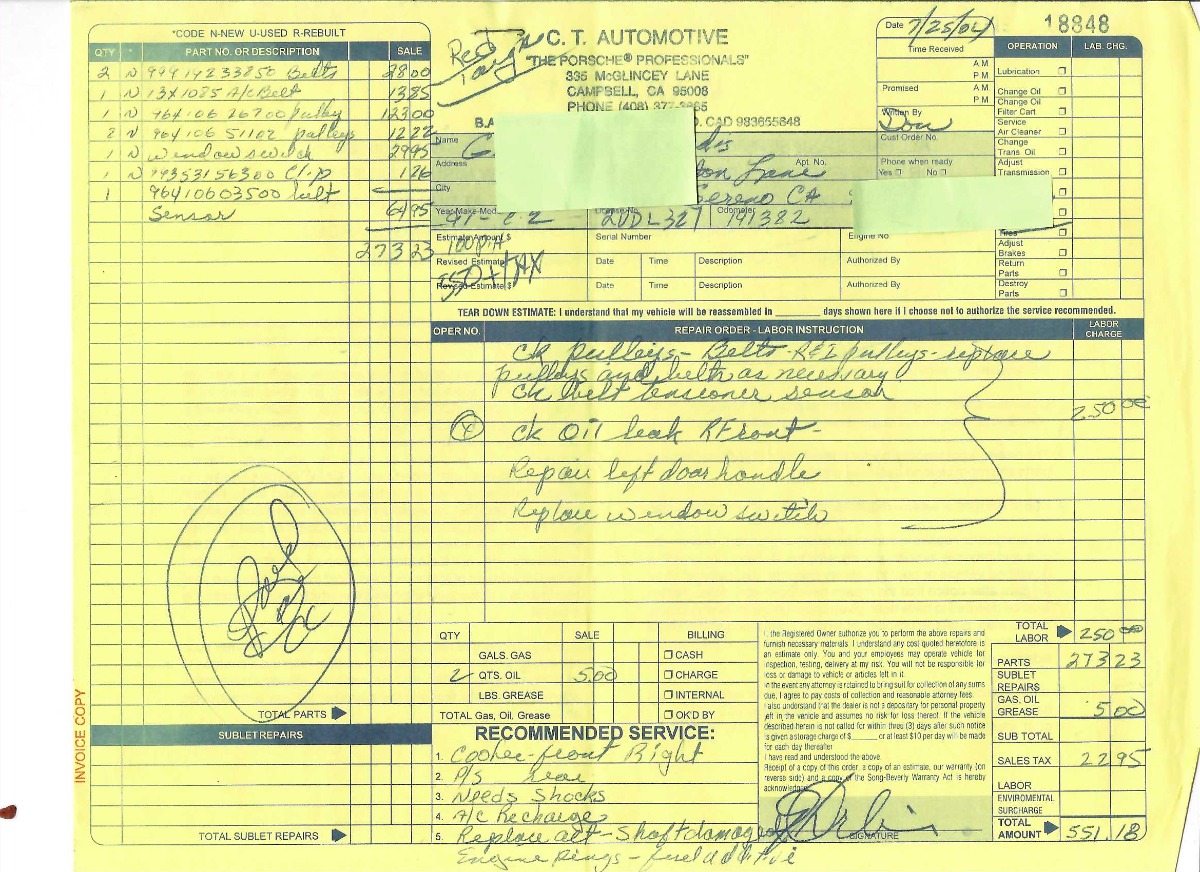 *CODE N-NEW U-USED R-REBUILT
QTY * PART NO. OR DESCRIPTION SALE
2 N 99919233850 Belts 28 00
1 N 13X1085 A/c Belt 13 85
1 N 964 106 26700 pulley 123 00
2 N 964 106 51102 pulleys 12 22
1 N window switch 29 95
1 N 99353156300 Clip 1 26
1 96410603500 belt
Sensor 64 95
273 23
TOTAL PARTS
SUBLET REPAIRS
TOTAL SUBLET REPAIRS
INVOICE COPY
Paid
C. T. AUTOMOTIVE
"THE PORSCHE® PROFESSIONALS"
335 McGLINCEY LANE
CAMPBELL, CA 95008
PHONE (408) 377-3865
B.A CAD 983655648
Date 7/25/04 18848
Time Received
AM
PM
Promised AM
PM
Written By Don
Cust Order No.
Phone when ready
Yes No
Name
Address Apt. No. Lane
City Sereno CA
Year-Make-Model 91- C-2 License No. 2VDL327 Odometer 191382
Estimate Amount $ Serial Number Engine No.
Revised Estimate Date Time Description Authorized By
350 + TAX
Revised Estimate $ Date Time Description Authorized By
OPERATION LAB. CHG.
Lubrication
Change Oil
Change Oil
Filter Cart
Service
Air Cleaner
Change
Trans. Oil
Adjust
Transmission
Tires
Adjust
Brakes
Return
Parts
Destroy
Parts
TEAR DOWN ESTIMATE: I understand that my vehicle will be reassembled in ________ days shown here if I choose not to authorize the service recommended.
OPER NO. REPAIR ORDER - LABOR INSTRUCTION LABOR CHARGE
ck pulleys - Belts - R&I pulleys - replace
pulleys and belts as necessary
ck belt tensioner sensor
250 00
ck oil leak R Front -
Repair left door handle
Replace window switch
QTY SALE BILLING
GALS. GAS CASH
2 QTS. OIL 5.00 CHARGE
LBS. GREASE INTERNAL
TOTAL Gas, Oil, Grease OK'D BY
RECOMMENDED SERVICE:
1. Cooler - front Right
2. P/S
3. Needs Shocks
4. A/C Recharge
5. Replace - Shaft damaged
Engine Pings - fuel additive
I, the Registered Owner authorize you to perform the above repairs and
furnish necessary materials. I understand any cost quoted heretofore is
an estimate only. You and your employees may operate vehicle for
inspection, testing, delivery at my risk. You will not be responsible for
loss or damage to vehicle or articles left in it.
In the event any attorney is retained to bring suit for collection of any sums
due, I agree to pay costs of collection and reasonable attorney fees.
I also understand that the dealer is not a depositary for personal property
left in the vehicle and assumes no risk for loss thereof. If the vehicle
described herein is not called for within three (3) days after such notice
is given a storage charge of $______ or at least $10 per day will be made
for each day thereafter
I have read and understood the above.
Receipt of a copy of this order, a copy of an estimate, our warranty (on
reverse side) and a copy of the Song-Beverly Warranty Act is hereby
acknowledge
SIGNATURE
TOTAL LABOR 250 00
PARTS 273 23
SUBLET REPAIRS
GAS, OIL GREASE 5 00
SUB TOTAL
SALES TAX 22 95
LABOR
ENVIROMENTAL SURCHARGE
TOTAL AMOUNT 551.18